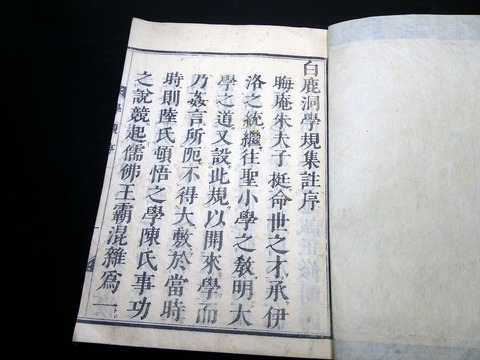 白鹿洞學規集註序
晦庵朱夫子挺命世之才承伊
洛之統繼往聖小學之教明大
學之道又設此規以開來學而
乃姦言所阨不得大敷於當時
時則陸氏頓悟之學陳氏事功
之說競起儒佛王霸混雜為一